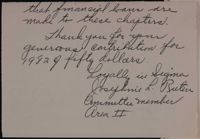 that financial loans are
made to these chapters.
Thank you for your
generous contribution for
1929 fifty dollars.
Loyally in Sigma
Josephine L.
Committee member
Area II